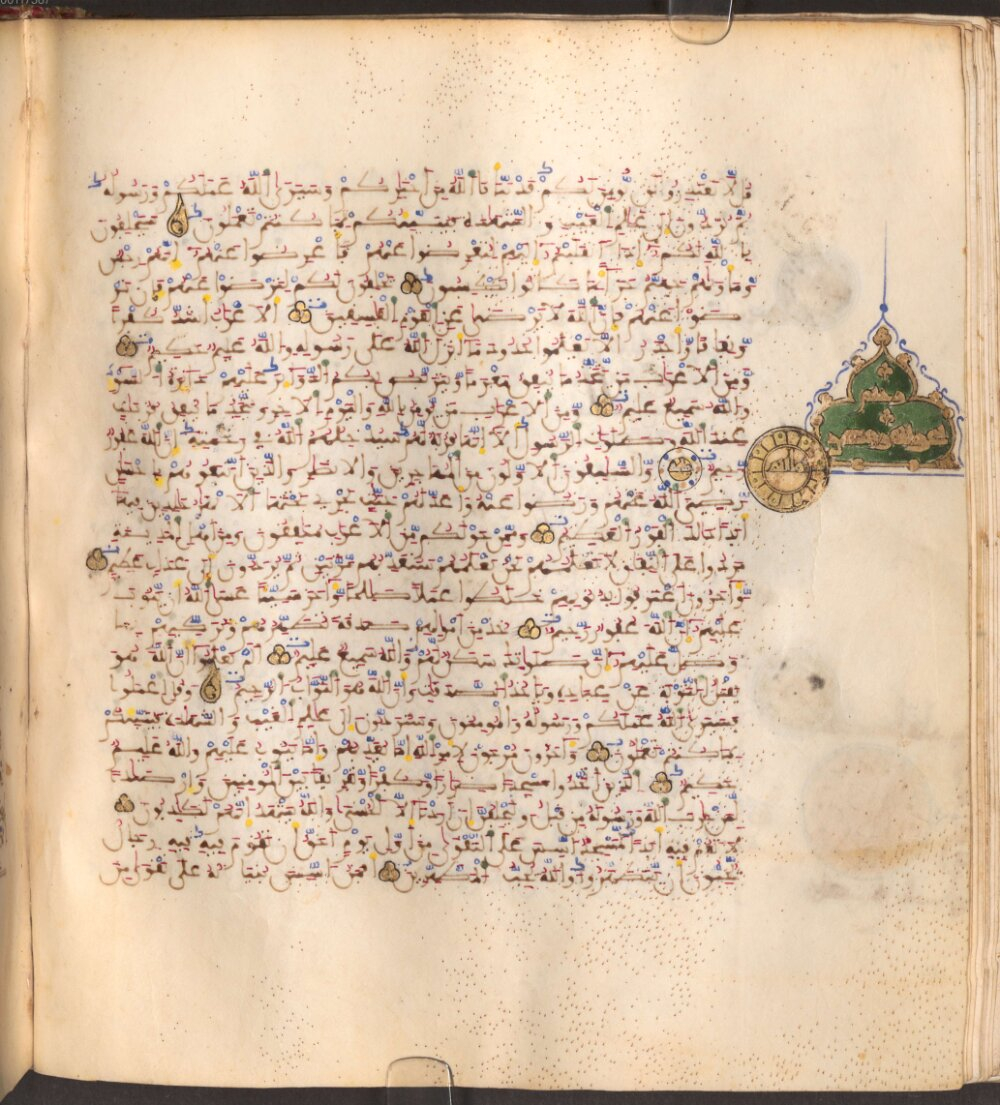 قل لا تعتذروا لن نومن لكم قد نبأنا الله من أخباركم وسيرى الله عملكم ورسوله
ثم تردون إلى علم الغيب والشهدة فينبئكم بما كنتم تعملون سيحلفون
بالله لكم إذا انقلبتم إليهم لتعرضوا عنهم فأعرضوا عنهم إنهم رجس
ومأويهم جهنم جزاء بما كانوا يكسبون يحلفون لكم لترضوا عنهم فإن تر
ضوا عنهم فإن الله لا يرضى عن القوم الفسقين الأعراب أشد كفرا
ونفاقا وأجدر ألا يعلموا حدود ما أنزل الله على رسوله والله عليم حكيم
ومن الأعراب من يتخذ ما ينفق مغرما ويتربص بكم الدوائر عليهم دائرة السوء
والله سميع عليم ومن الأعراب من يومن بالله واليوم الآخر ويتخذ ما ينفق قربات
عند الله وصلوات الرسول ألا إنها قربة لهم سيدخلهم الله في رحمته إن الله غفور
رحيم والسبقون الأولون من المهجرين والأنصار والذين اتبعوهم بإحسن
رضي الله عنهم ورضوا عنه وأعد لهم جنت تجري تحتها الأنهر خلدين فيها
أبدا ذلك الفوز العظيم وممن حولكم من الأعراب منفقون ومن أهل المدينة
مردوا على النفاق لا تعلمهم نحن نعلمهم سنعذبهم مرتين ثم يردون إلى عذاب عظيم
وآخرون اعترفوا بذنوبهم خلطوا عملا صلحا وآخر سيئا عسى الله أن يتوب
عليهم إن الله غفور رحيم خذ من أمولهم صدقة تطهرهم وتزكيهم بها
وصل عليهم إن صلواتك سكن لهم والله سميع عليم ألم يعلموا أن الله هو
يقبل التوبة عن عباده ويأخذ الصدقت وأن الله هو التواب الرحيم وقل اعملوا
فسيرى الله عملكم ورسوله والمومنون وستردون إلى علم الغيب والشهدة فينبئكم
بما كنتم تعملون وآخرون مرجون لأمر الله إما يعذبهم وإما يتوب عليهم والله عليم
حكيم الذين اتخذوا مسجدا ضرارا وكفرا وتفريقا بين المومنين وإرصادا
لمن حارب الله ورسوله من قبل وليحلفن إن أردنا إلا الحسنى والله يشهد إنهم لكذبون
لا تقم فيه أبدا لمسجد أسس على التقوى من أول يوم أحق أن تقوم فيه فيه رجال
يحبون أن يتطهروا والله يحب المطهرين أفمن أسس بنينه على تقوى من